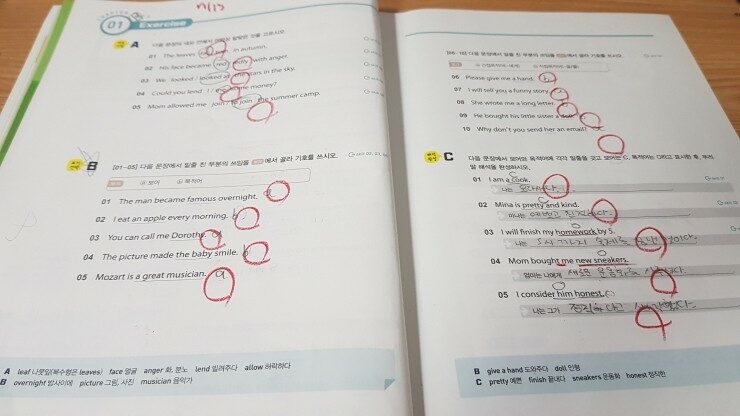 n/13
CHAPTER
01 Exercise
A 다음 문장의 네모 안에서 알맞은 것을 고르시오.
01 The leaves in autumn.
02 His face became red / with anger.
03 We looked / looked at the stars in the sky.
04 Could you lend / me some money?
05 Mom allowed me join / to join the summer camp.
B [01-05] 다음 문장에서 밑줄 친 부분의 쓰임을 보기 에서 골라 기호를 쓰시오.
ⓐ 보어 ⓑ 목적어
01 The man became famous overnight. a
02 I eat an apple every morning. b
03 You can call me Dorothy. a
04 The picture made the baby smile. b
05 Mozart is a great musician. a
A leaf 나뭇잎(복수형은 leaves) face 얼굴 anger 화, 분노 lend 빌려주다 allow 허락하다
B overnight 밤사이에 picture 그림, 사진 musician 음악가
[06-10] 다음 문장에서 밑줄 친 부분의 쓰임을 보기 에서 골라 기호를 쓰시오.
ⓐ 간접목적어(~에게) ⓑ 직접목적어(~을/를)
06 Please give me a hand. b
07 I will tell you a funny story.
08 She wrote me a long letter.
09 He bought his little sister a doll.
10 Why don't you send her an email?
C 다음 문장에서 보어와 목적어에 각각 밑줄을 긋고 보어는 C, 목적어는 O라고 표시한 후, 우리말 해석을 완성하시오.
01 I am a cook.
나는 요리사다.
02 Mina is pretty and kind.
미나는 예쁘고 친절하다.
03 I will finish my homework by 5.
나는 5시 까지 숙제를 끝낼 것이다.
04 Mom bought me new sneakers.
엄마는 나에게 새로운 운동화를 사주셨다.
05 I consider him honest.
나는 그가 정직하다고 생각한다.
B give a hand 도와주다 doll 인형
C pretty 예쁜 finish 끝내다 sneakers 운동화 honest 정직한